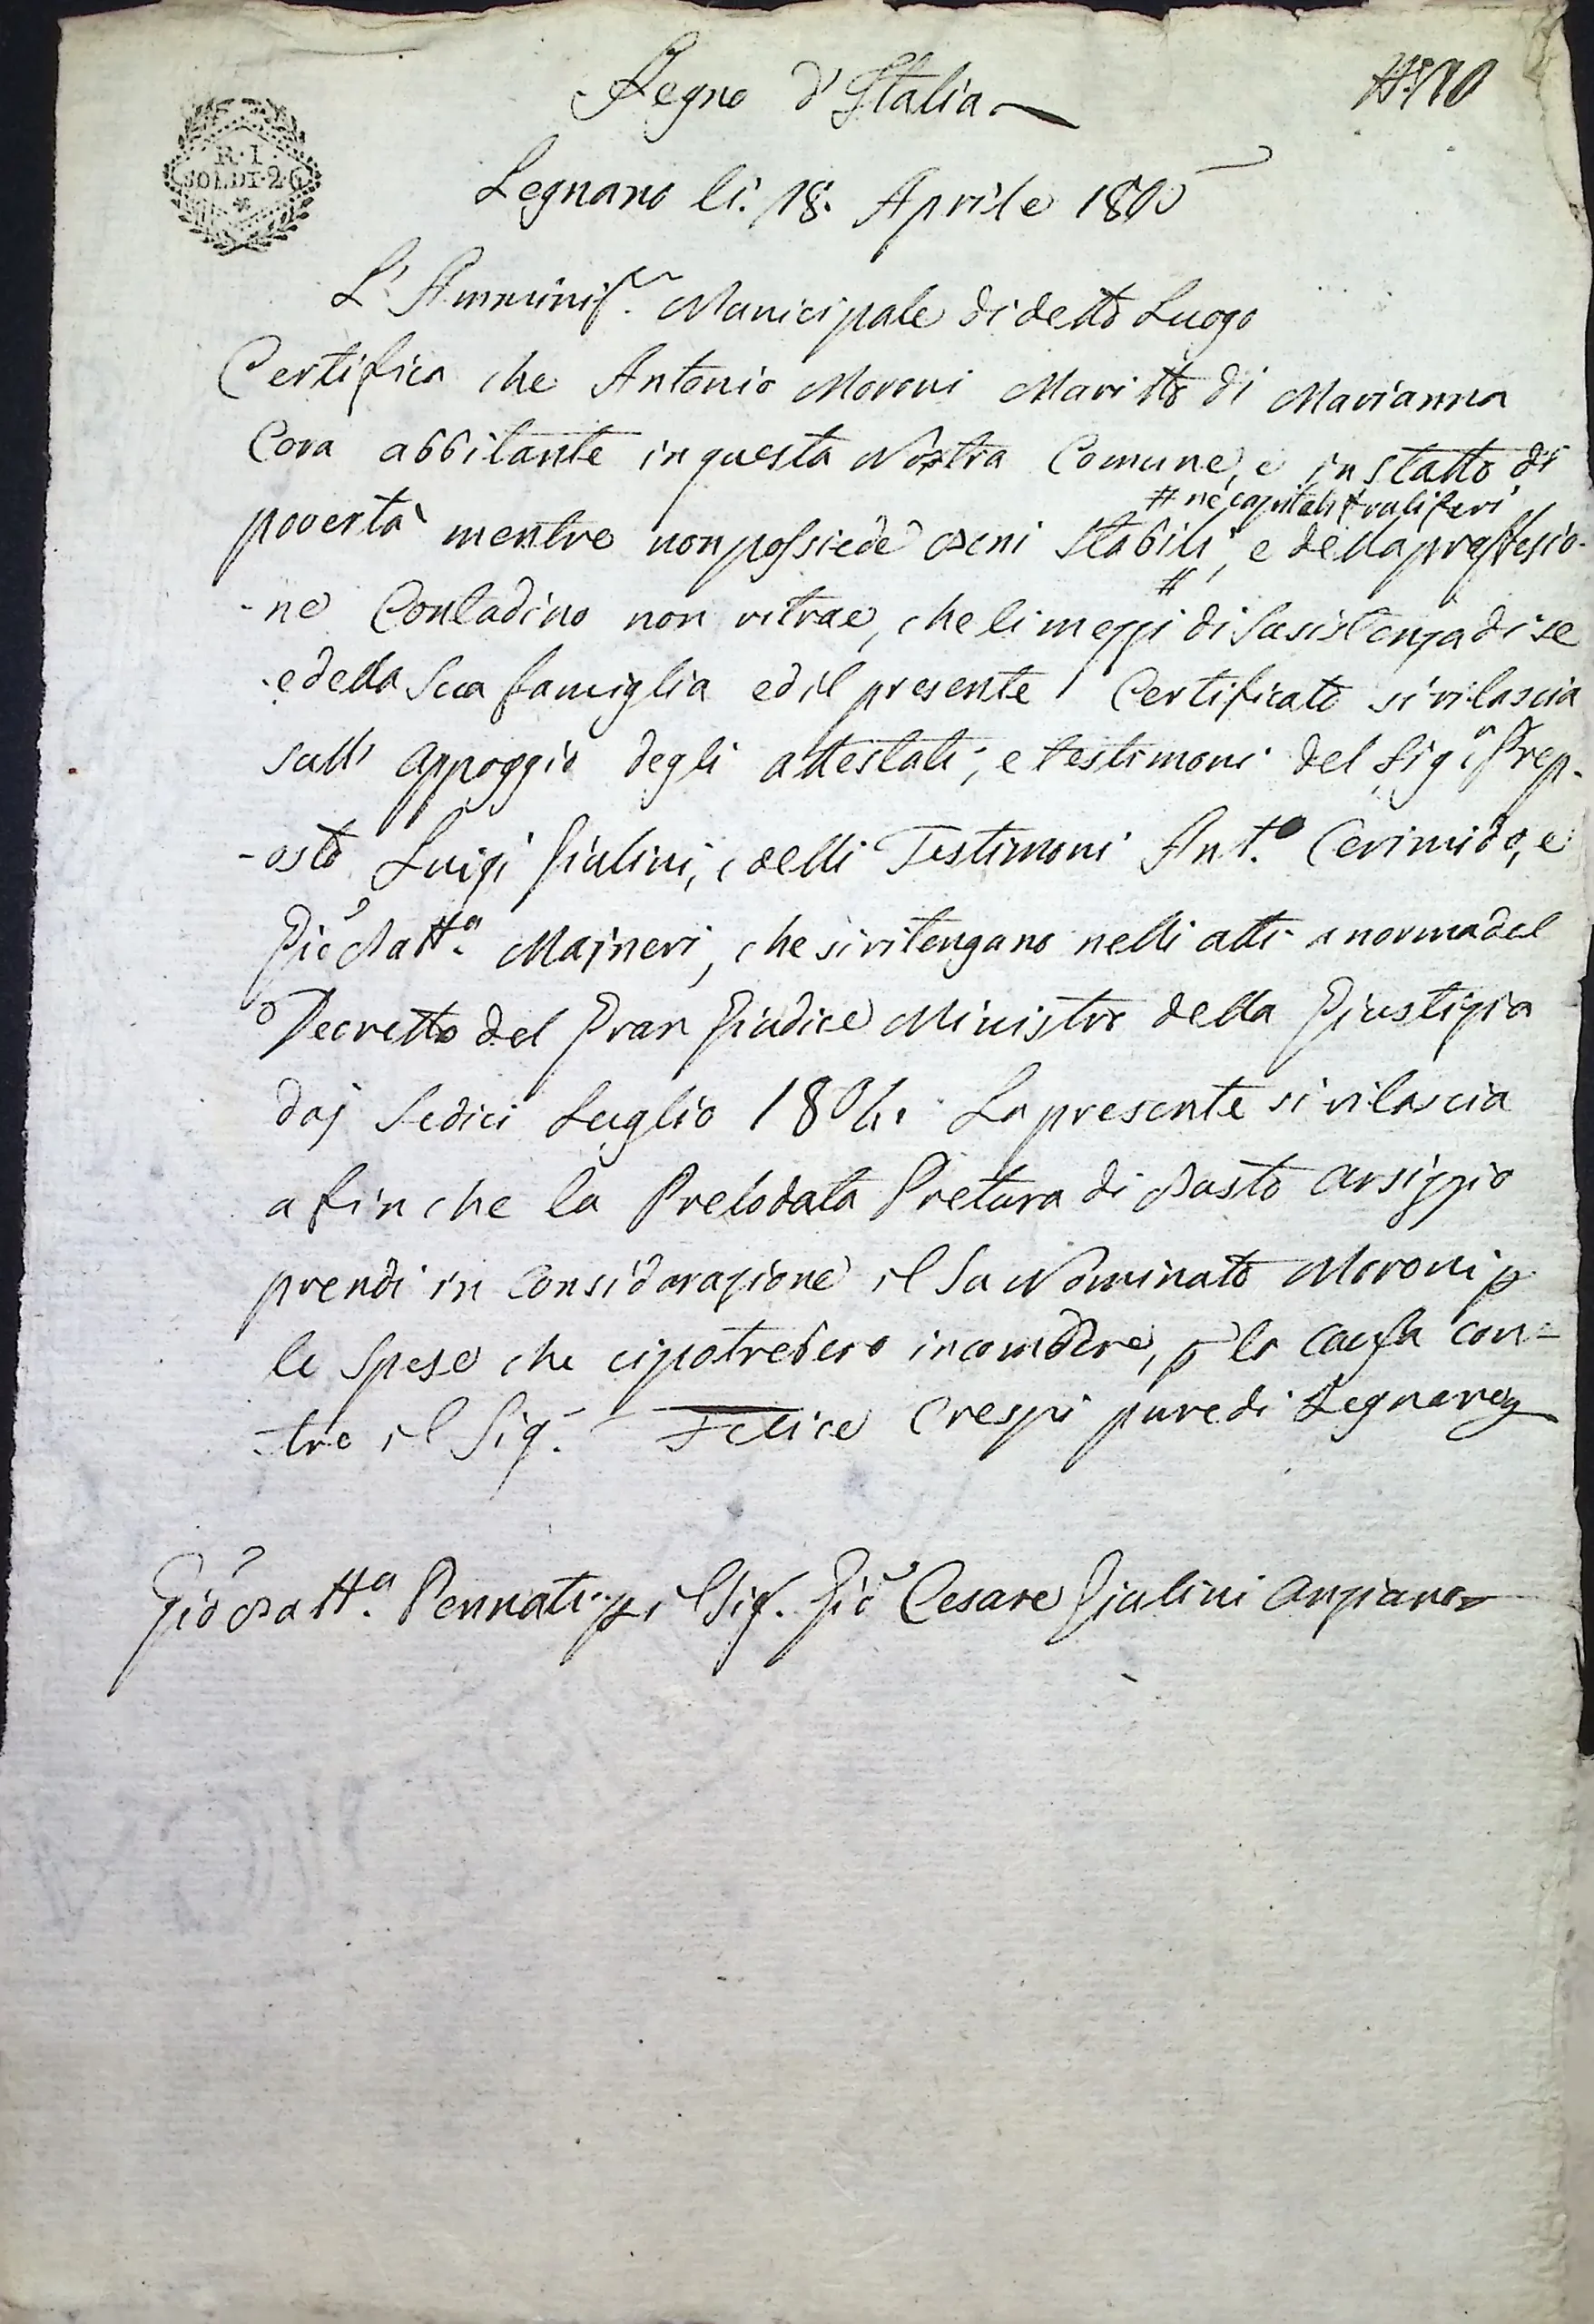 Regno d'Italia
N.º 10
R. I.
SOLDI. 26
Legnano li. 18. Aprile 1805
L'Amminis.ne Municipale di detto Luogo
Certifica che Antonio Moroni Maritto di Marianna
Cova abbitante in questa Nostra Comune, e in Statto di
# ne capitali frutiferi
povertà mentre non possiede Beni Stabili, e della proffesio-
#
-ne Contadino non ritrae, che li mezzi di Susistenza di se
e della Sua famiglia ed il presente Certificato si rilascia
sull' appoggio degli attestati, e testimoni del Sig.r Prep-
-osto Luigi Giulini, e delli Testimoni Ant.o Cerimido, e
Gio Batt.a Majneri, che si ritengano nelli atti a norma del
Decretto del Gran Giudice Ministro della Giustizia
daj Sedici Luglio 1804. La presente si rilascia
a fin che la Prelodata Pretura di Busto arsizzio
prendi in Considerazione il Su Nominato Moroni p
le Spese che ci potrebero incomdere, p la Causa con=
-tro il Sig.r Felice Crespi pure di Legnano
Gio Batt.a Pennati p il Sig. Gio Cesare Giulini Anziano